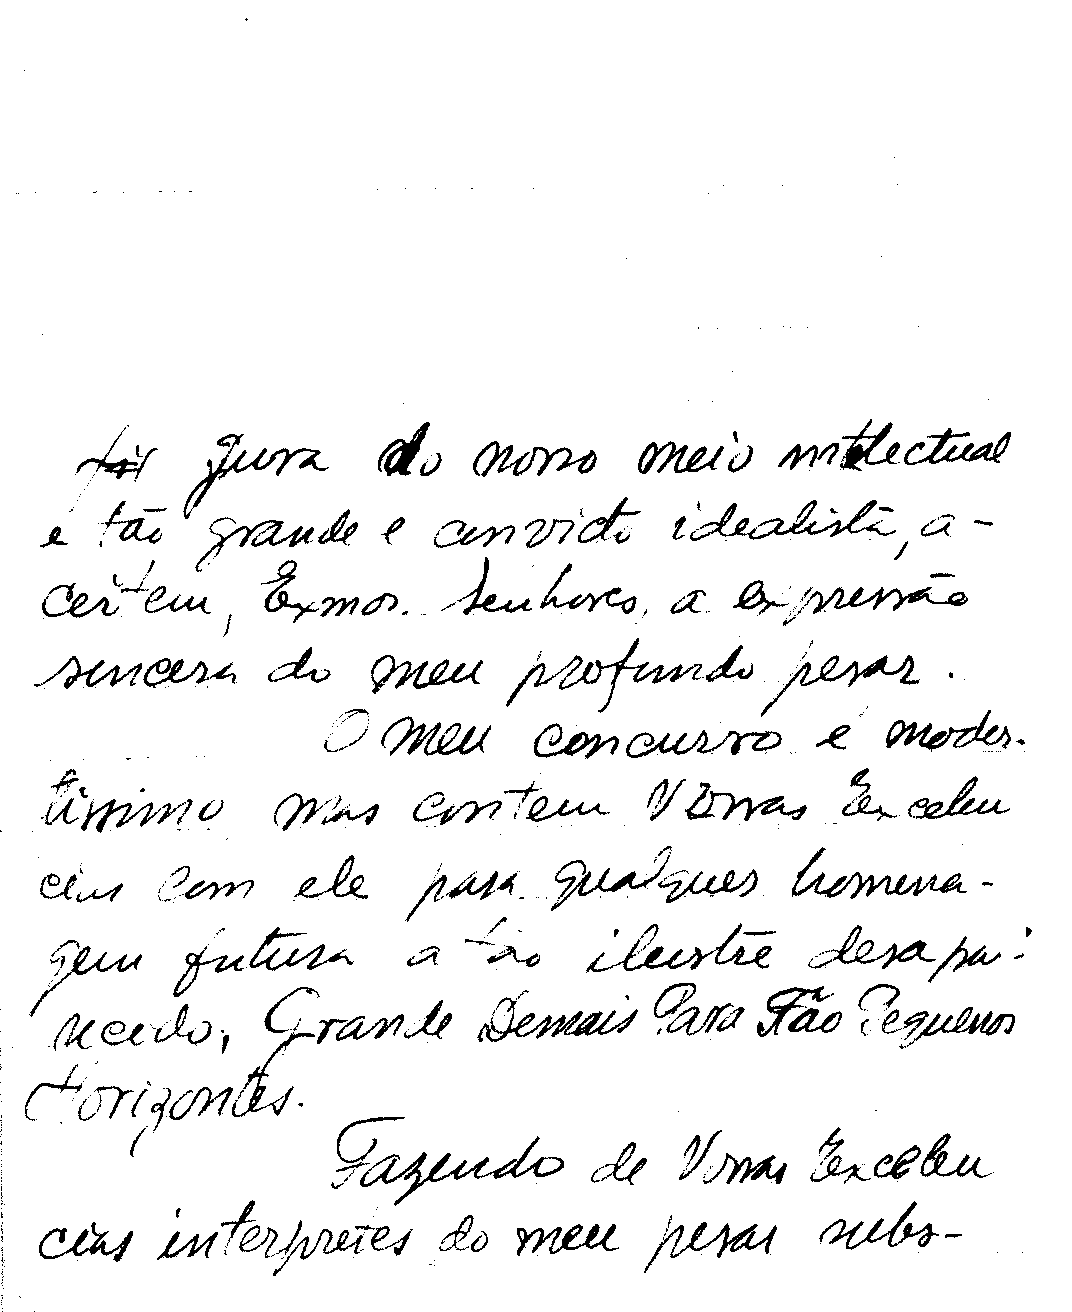 gura do nosso meio intelectual
e tão grande e convicto idealista, a-
ceitem, Exmos. Senhores, a expressão
sincera do meu profundo pesar.
O meu concurso é modes-
tissimo mas contem Vossas Excelen
cias com ele para qualquer homena-
gem futura a tão ilustre desapa-
recido, Grande Demais Para Tão Pequenos
Horizontes.
Fazendo de Vossas Excelen
cias interpretes do meu pesar subs-